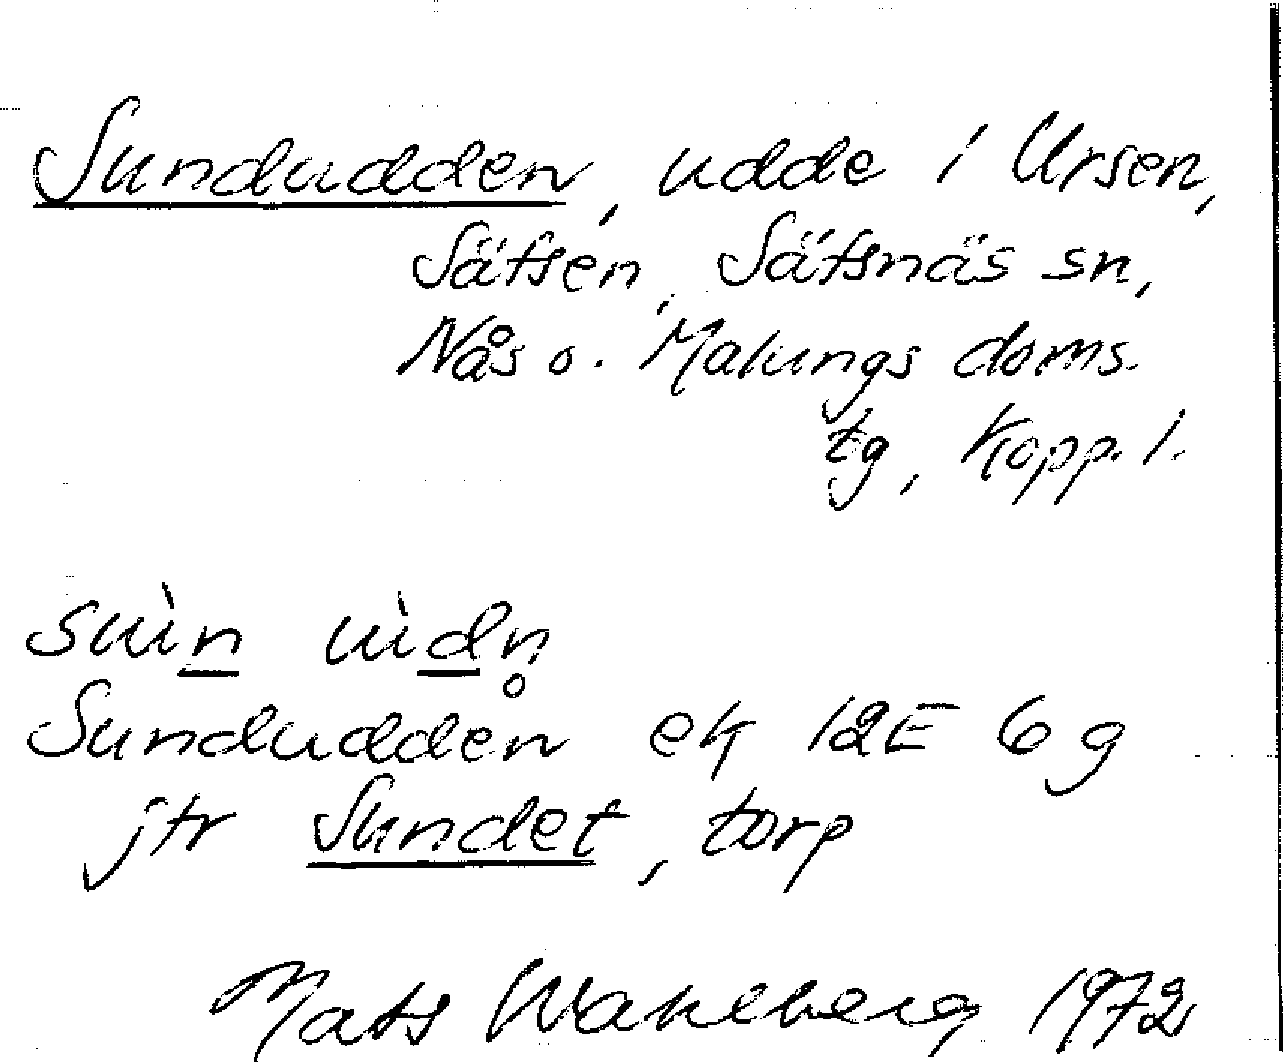 Sundudden, udde i Ursen,
Säfsen, Säfsnäs sn,
Nås o. Malungs doms.
tg, Kopp. l.
sùn ùdn̥
Sundudden ek 12E 6g
jfr Sundet, torp
Mats Wahlberg 1972